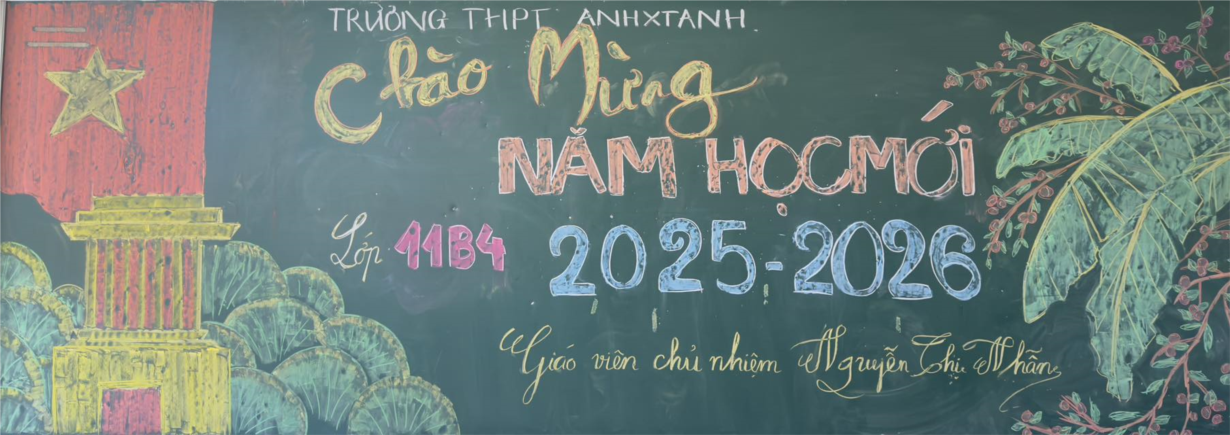 TRƯỜNG THPT ANHXTANH
Chào Mừng
NĂM HỌC MỚI
Lớp 11B4
2025-2026
Giáo viên chủ nhiệm Nguyễn Thị Nhẫn